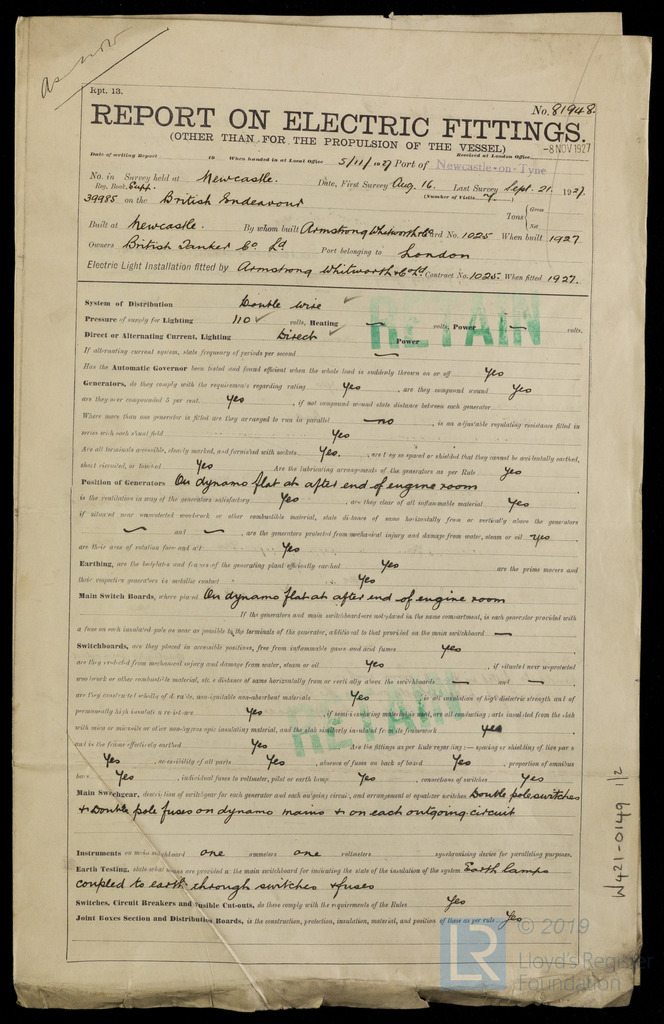 as now
Rpt. 13.
No. 81948
REPORT ON ELECTRIC FITTINGS.
(OTHER THAN FOR THE PROPULSION OF THE VESSEL)
-8 NOV 1927
Date of writing Report 19 When handed in at Local Office 5/11/1927 Port of Newcastle-on-Tyne Received at London Office
No. in Survey held at Newcastle. Date, First Survey Aug. 16. Last Survey Sept. 21. 1927.
Reg. Book. Supp. (Number of Visits 7)
39985 on the British Endeavour Tons { Gross Net
Built at Newcastle. By whom built Armstrong Whitworth & Co Yard No. 1025 When built 1927
Owners British Tanker Co Ld Port belonging to London
Electric Light Installation fitted by Armstrong Whitworth & Co Ld Contract No. 1025. When fitted 1927.
System of Distribution Double wire ✓
Pressure of supply for Lighting 110 ✓ volts, Heating — volts, Power — volts.
Direct or Alternating Current, Lighting Direct ✓ Power
RETAIN
If alternating current system, state frequency of periods per second —
Has the Automatic Governor been tested and found efficient when the whole load is suddenly thrown on or off Yes
Generators, do they comply with the requirements regarding rating Yes, are they compound wound Yes
are they over compounded 5 per cent. Yes, if not compound wound state distance between each generator
Where more than one generator is fitted are they arranged to run in parallel — no, is an adjustable regulating resistance fitted in
series with each shunt field Yes
Are all terminals accessible, clearly marked, and furnished with sockets Yes., are they so spaced or shielded that they cannot be accidentally earthed,
short circuited, or touched Yes Are the lubricating arrangements of the generators as per Rule Yes
Position of Generators On dynamo flat at after end of engine room
is the ventilation in way of the generators satisfactory Yes, are they clear of all inflammable material Yes
if situated near unprotected woodwork or other combustible material, state distance of same horizontally from or vertically above the generators
— and —, are the generators protected from mechanical injury and damage from water, steam or oil Yes
are their axes of rotation fore and aft Yes
Earthing, are the bedplates and frames of the generating plant efficiently earthed Yes are the prime movers and
their respective generators in metallic contact Yes
Main Switch Boards, where placed On dynamo flat at after end of engine room
If the generators and main switchboard are not placed in the same compartment, is each generator provided with
a fuse on each insulated pole as near as possible to the terminals of the generator, additional to that provided on the main switchboard —
Switchboards, are they placed in accessible positions, free from inflammable gases and acid fumes Yes
are they protected from mechanical injury and damage from water, steam or oil Yes, if situated near unprotected
woodwork or other combustible material, state distance of same horizontally from or vertically above the switchboards — and —
are they constructed wholly of durable, non-ignitable non-absorbent materials Yes, is all insulation of high dielectric strength and of
permanently high insulation resistance Yes, if semi-insulating material is used, are all conducting parts insulated from the slab
with mica or micanite or other non-hygroscopic insulating material, and the slab similarly insulated from its framework Yes
RETAIN
and is the frame effectively earthed Yes Are the fittings as per Rule regarding:— spacing or shielding of live parts
Yes, accessibility of all parts Yes, absence of fuses on back of board Yes, proportion of omnibus
bars Yes, individual fuses to voltmeter, pilot or earth lamp Yes, connections of switches Yes
Main Switchgear, description of switchgear for each generator and each outgoing circuit, and arrangement of equalizer switches Double pole switches
& Double pole fuses on dynamo mains & on each outgoing circuit
Instruments on main switchboard one ammeters one voltmeters synchronising device for paralleling purposes.
Earth Testing, state what means are provided on the main switchboard for indicating the state of the insulation of the system Earth lamps
coupled to earth through switches & fuses
Switches, Circuit Breakers and Fusible Cut-outs, do these comply with the requirements of the Rules Yes
Joint Boxes Section and Distribution Boards, is the construction, protection, insulation, material, and position of these as per rule Yes
W421-0149 1/2
LR
© 2019
Lloyd's Register
Foundation